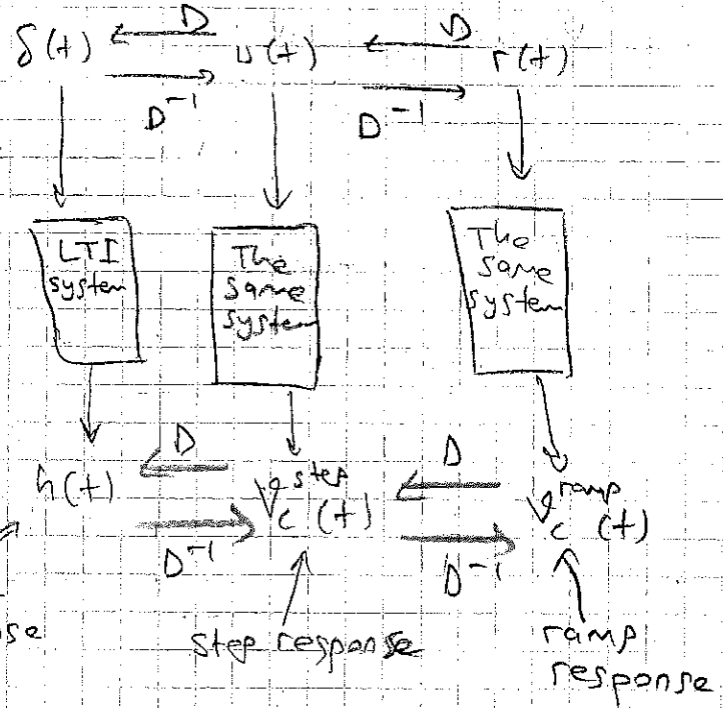 D D
δ(t) u(t) r(t)
D⁻¹ D⁻¹
LTI
system
The
same
system
The
same
system
D D
h(t) V_c^step(t) V_c^ramp(t)
D⁻¹ D⁻¹
step response
ramp
response